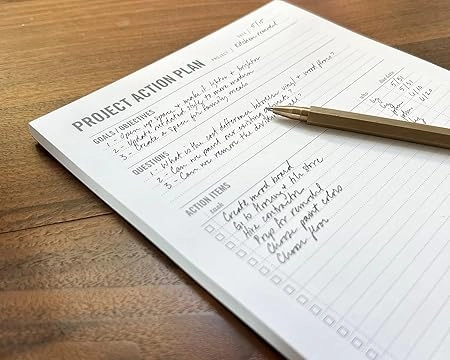 PROJECT ACTION PLAN
DATE / 5/15
PROJECT / Kitchen remodel
GOALS / OBJECTIVES
1 - Open up space & make it lighter & brighter
2 - Update outdated style to more modern
3 - Create a space for family meals
QUESTIONS
1 - What is the cost difference between vinyl & wood floors?
2 - Can we paint our existing cabinets?
3 - Can we remove the
ACTION ITEMS
TASK
Create mood board
Go to flooring & tile store
Hire contractor
Prep for remodel
Choose paint colors
Choose floor
by 5/31